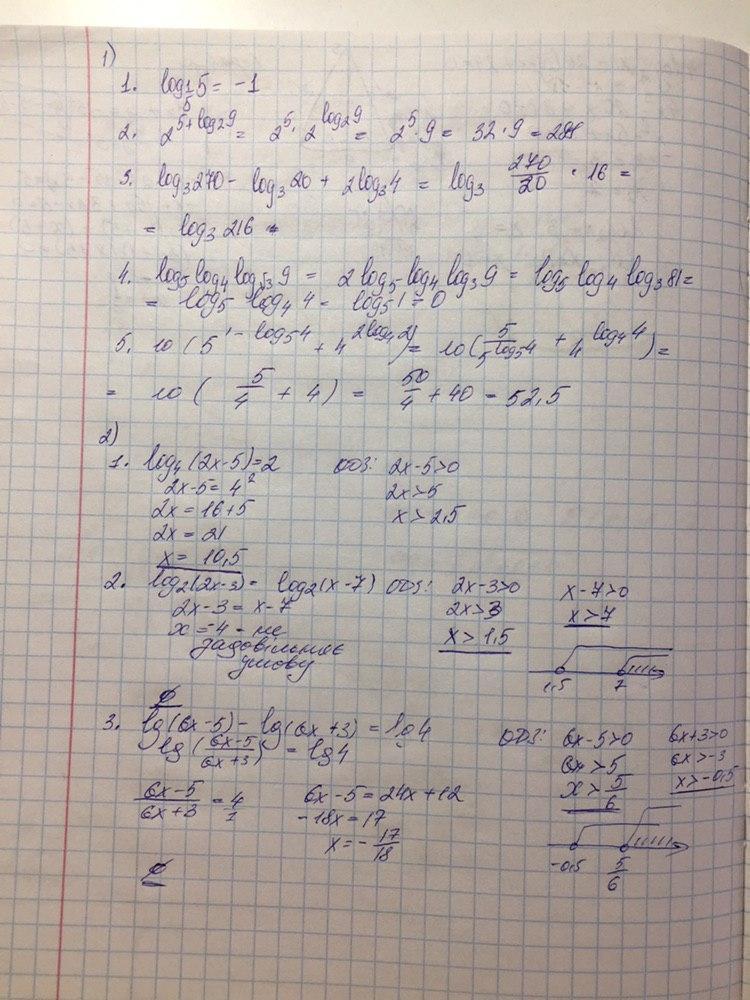 1)
1. log_{1/5} 5 = -1
2. 2^{5+log₂9} = 2⁵ · 2^{log₂9} = 2⁵ · 9 = 32 · 9 = 288
3. log₃270 - log₃20 + 2log₃4 = log₃ 270/20 · 16 =
= log₃216
4. log₅log₄log_{√3}9 = 2log₅log₄log₃9 = log₅log₄log₃81 =
= log₅ log₄4 = log₅1 = 0
5. 10(5^{1-log₅4} + 4^{2log₄2}) = 10(5/5^{log₅4} + 4^{log₄4}) =
= 10(5/4 + 4) = 50/4 + 40 = 52,5
2)
1. log₄(2x-5)=2 ОДЗ: 2x-5>0
2x-5=4² 2x>5
2x=16+5 x>2,5
2x=21
x=10,5
2. log₂(2x-3)= log₂(x-7) ОДЗ: 2x-3>0 x-7>0
2x-3=x-7 2x>3 x>7
x=-4 - не x>1,5
задовільняє
умову
1,5 7
∅
3. lg(6x-5)-lg(6x+3)=lg4 ОДЗ: 6x-5>0 6x+3>0
lg(6x-5/6x+3)=lg4 6x>5 6x>-3
6x-5/6x+3=4/1 6x-5=24x+12 x>5/6 x>-0,5
-18x=17
x=-17/18
-0,5 5/6
∅